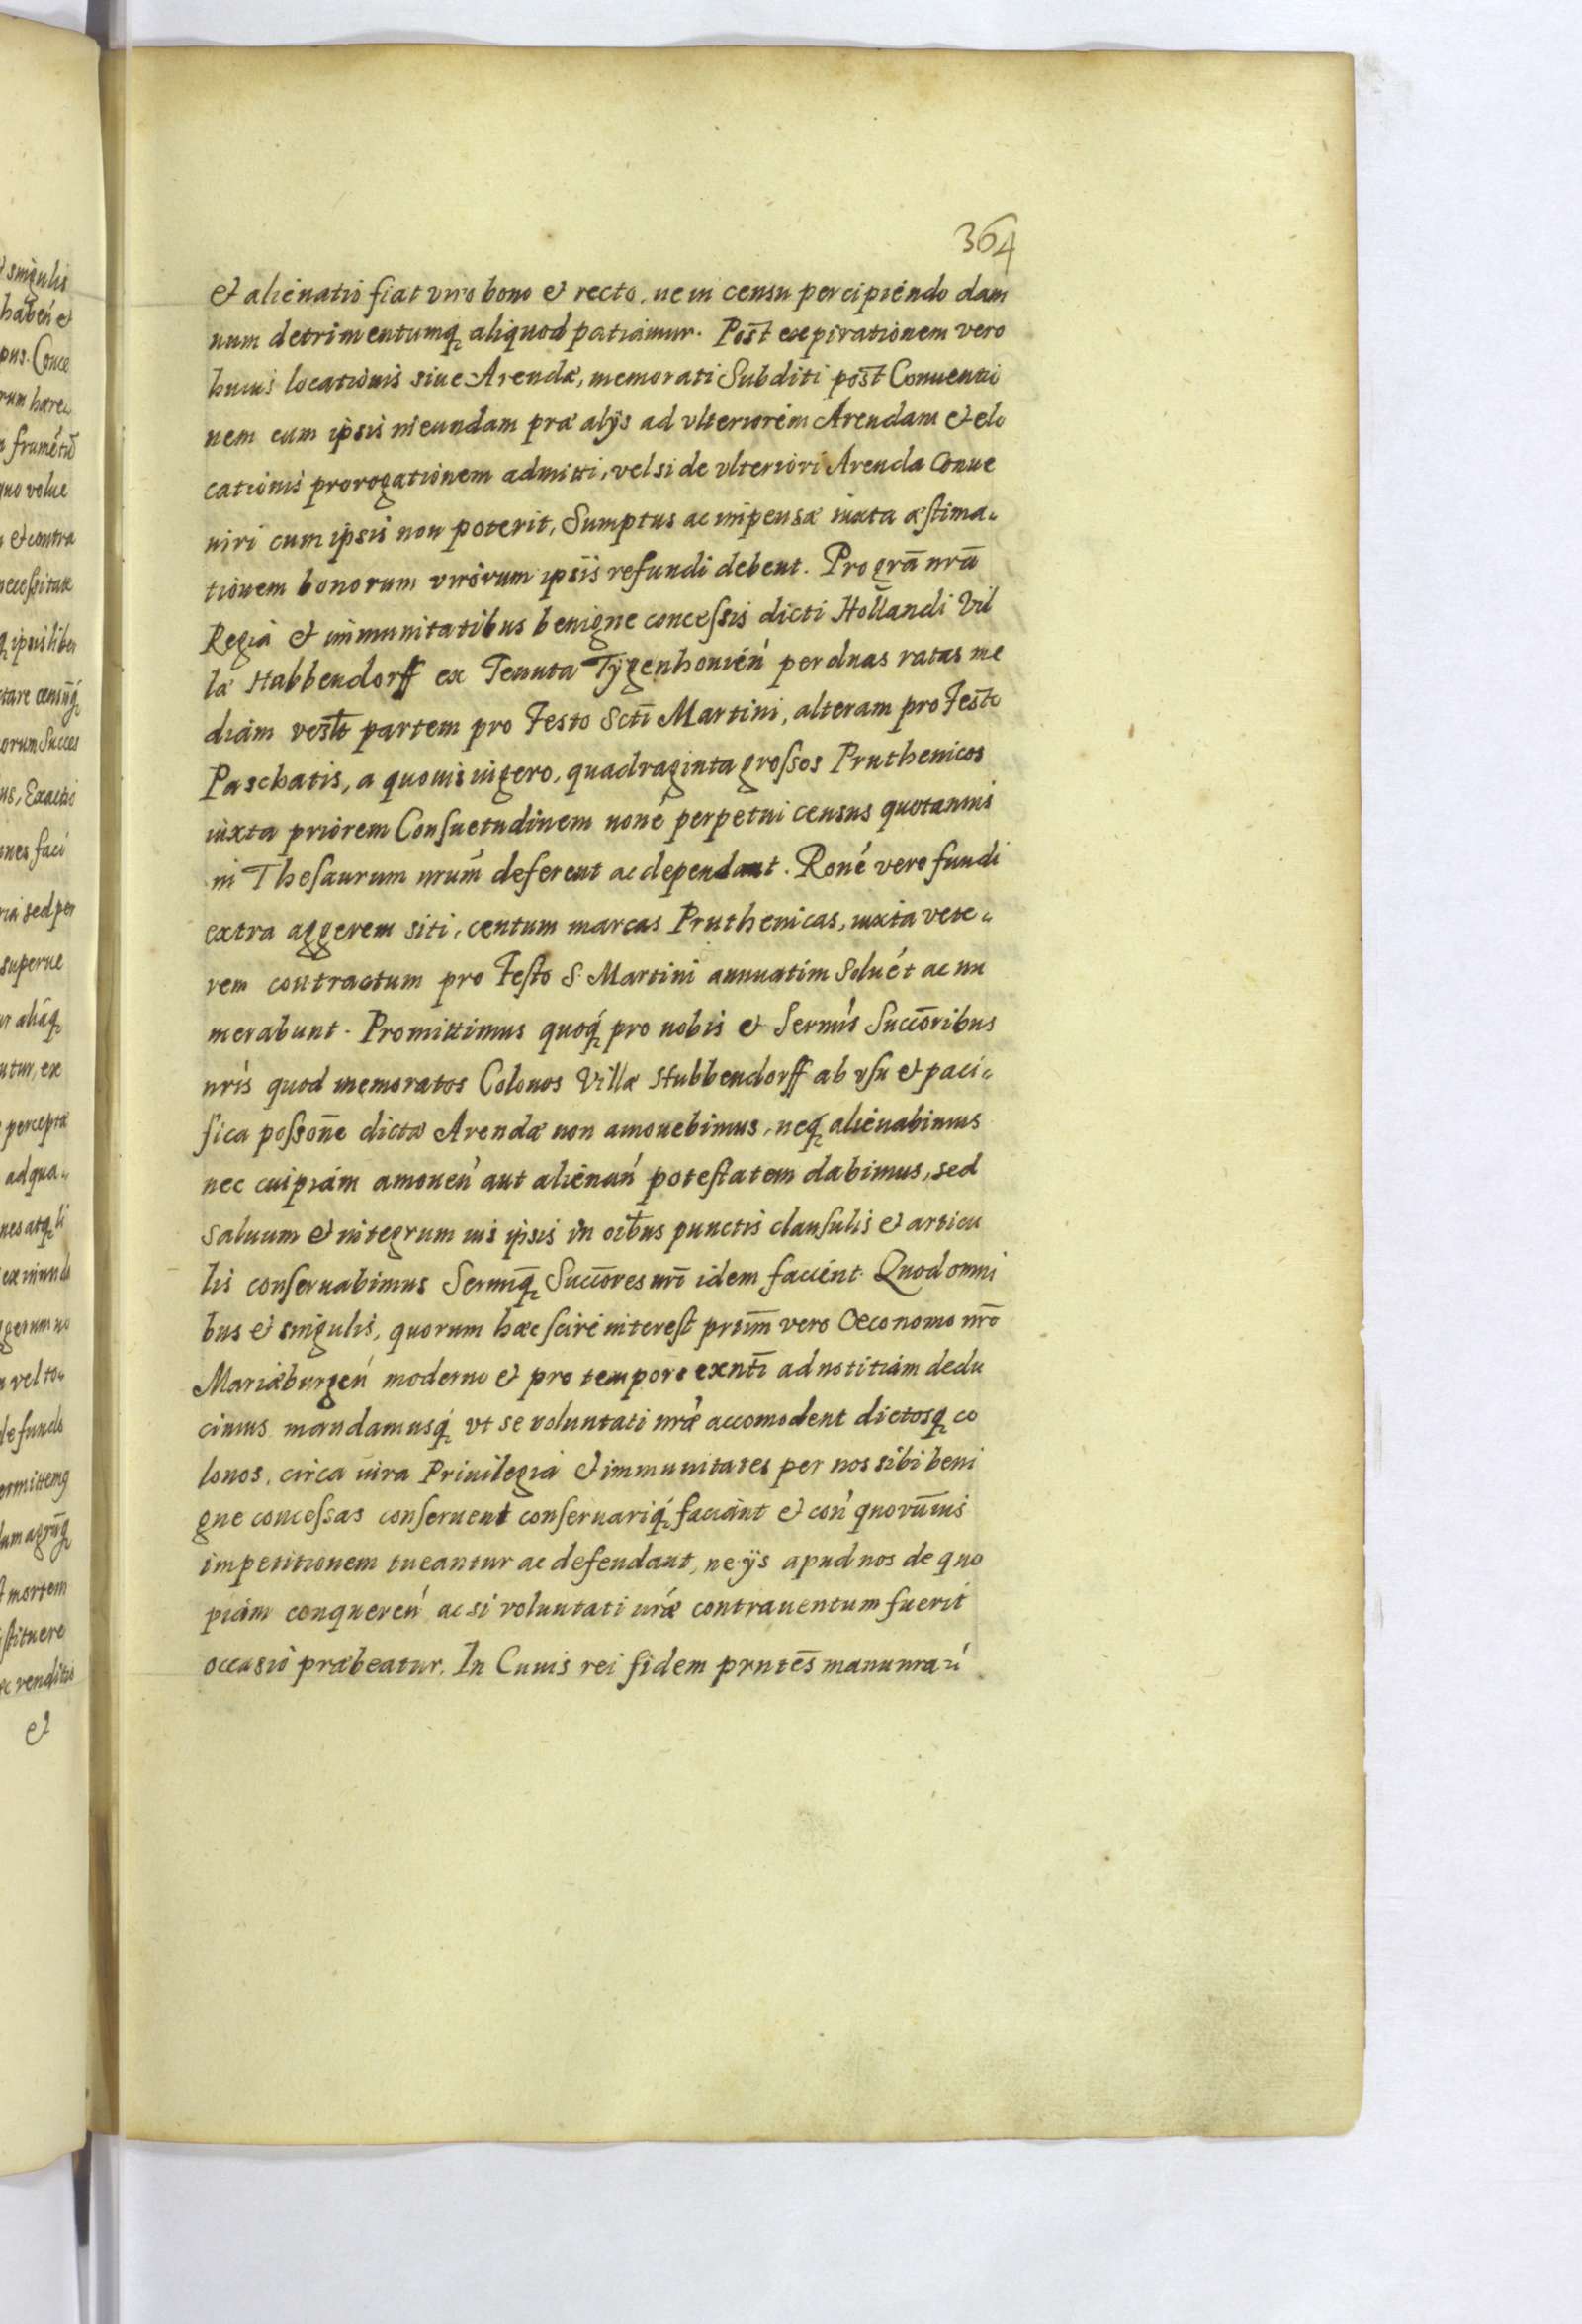 364
& singulis
haben &
pus. Conce
rum hære
frumẽtũ
quo volue
& contra
necessitate
q ipsis liber
ctare censuq
orum Succes
us, Exactio
ones faci
ria sed per
superue
ur aliáq
utur, ex
percepta
ad qua
nes atq li
ex inunda
ggerum no
vel to
de fundo
ermittemq
lam agrũq
& mortem
stituere
ec venditio
&
& alienatio fiat viro bono & recto, ne in censu percipiendo dam
num detrimentumq aliquod patiamur. Post expirationem vero
huius locationis siue Arendæ, memorati Subditi post Conuentio
nem cum ipsis ineundam præ alijs ad vlteriorem Arendam & elo
cationis prorogationem admitti, vel si de vlteriori Arenda Conue
niri cum ipsis non poterit, Sumptus ac impensæ iuxta æstima
tionem bonorum virorum ipsis refundi debent. Pro grã nrã
Regia & immunitatibus benigne concessis dicti Hollandi Vil
læ Habbendorff ex Tenuta Tygenhouien per duas ratas me
diam vestt partem pro Festo Scti Martini, alteram pro Festo
Paschatis, a quouis iugero, quadraginta grossos Pruthenicos
iuxta priorem Consuetudinem noné perpetui census quotannis
in Thesaurum nrum deferent ac dependant. Roné vero fundi
extra aggerem siti, centum marcas Pruthenicas, iuxta vete
rem contractum pro Festo S. Martini annuatim Soluét ac nu
merabunt. Promittimus quoq pro nobis & Sermis Succoribus
nris quod memoratos Colonos Villæ Stubbendorff ab vsu & paci
fica possone dictæ Arendæ non amouebimus, neq alienabimus
nec cuipiam amouen aut alienan potestatem dabimus, sed
saluum & integrum ius ipsis in oibus punctis clausulis & articu
lis conseruabimus Sermiq Succores nri idem facient. Quod omni
bus & singulis, quorum hæc scire interest prtim vero Oeconomo nro
Mariæburgen moderno & pro tempore exnti ad notitiam dedu
cimus mandamusq vt se voluntati nræ accomodent dictosq co
lonos, circa iura Priuilegia & immunitates per nos sibi beni
gne concessas conseruent conseruariq faciant & con quorumuis
impetitionem tueantur ac defendant, ne ijs apud nos de quo
piam conqueren ac si voluntati nræ contrauentum fuerit
occasio præbeatur. In Cuius rei fidem prntes manu nra ri